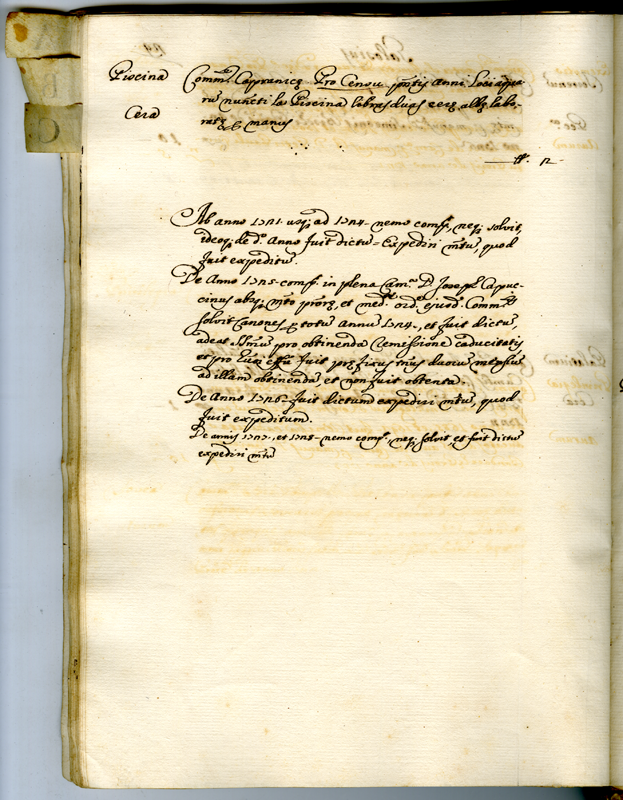 Piscina
Cera
Comm.tas Capranicę Pro Censu pñtis Anni Loci aqua
rũ nuncti La Piscina libras duas cerę albę labo-
ratę
manus
12
Ab anno 1721. usq; ad 1724- nemo comp.t, neq; solvit,
ideoq; de d.o Anno fuit dictũ = Expediri m̃tũ, quod
fuit expeditũ.
De Anno 1725- comp.t in plena Cam.a D. Joseph Capuc-
cinus absq; m̃to, et ejusd. Comm.tis
solvit Canones p totũ Annũ 1725-, et fuit dictũ,
adeat SSm̃us pro obtinenda remissione caducitatis
et pro effũ fuit pręfixus tñus duorũ mensiũ
ad illam obtinendã, et non fuit obtenta.
De Anno 1726- fuit dictum expediri m̃tũ, quod
fuit expeditum.
De annis 1727., et 1728- nemo comp.t, neq; solvit, et fuit dictũ
expediri m̃tũ